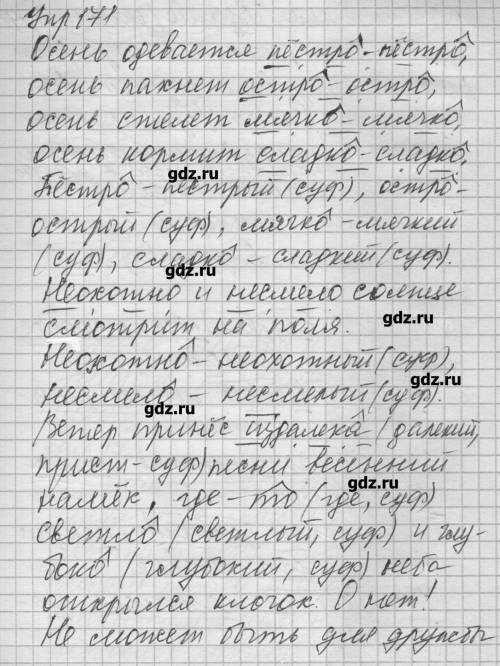 Упр 171
Осень одевается пёстро-пёстро,
осень пахнет остро-остро,
осень стелет мягко-мягко,
осень кормит сладко-сладко.
Пёстро - пёстрый (суф), остро-
острый (суф), мягко - мягкий
(суф), сладко - сладкий (суф).
gdz.ru gdz.ru
Неохотно и несмело солнце
смотрит на поля.
gdz.ru gdz.ru
Неохотно - неохотный (суф),
несмело - несмелый (суф).
gdz.ru gdz.ru
Ветер принёс издалека (далекий,
прист-суф) песни весенний
gdz.ru gdz.ru
намёк, где-то (где, суф)
светло (светлый, суф) и глу-
gdz.ru gdz.ru
боко (глубокий, суф) неба
открылся клочок. О нет!
gdz.ru gdz.ru
Не может быть для дружбы